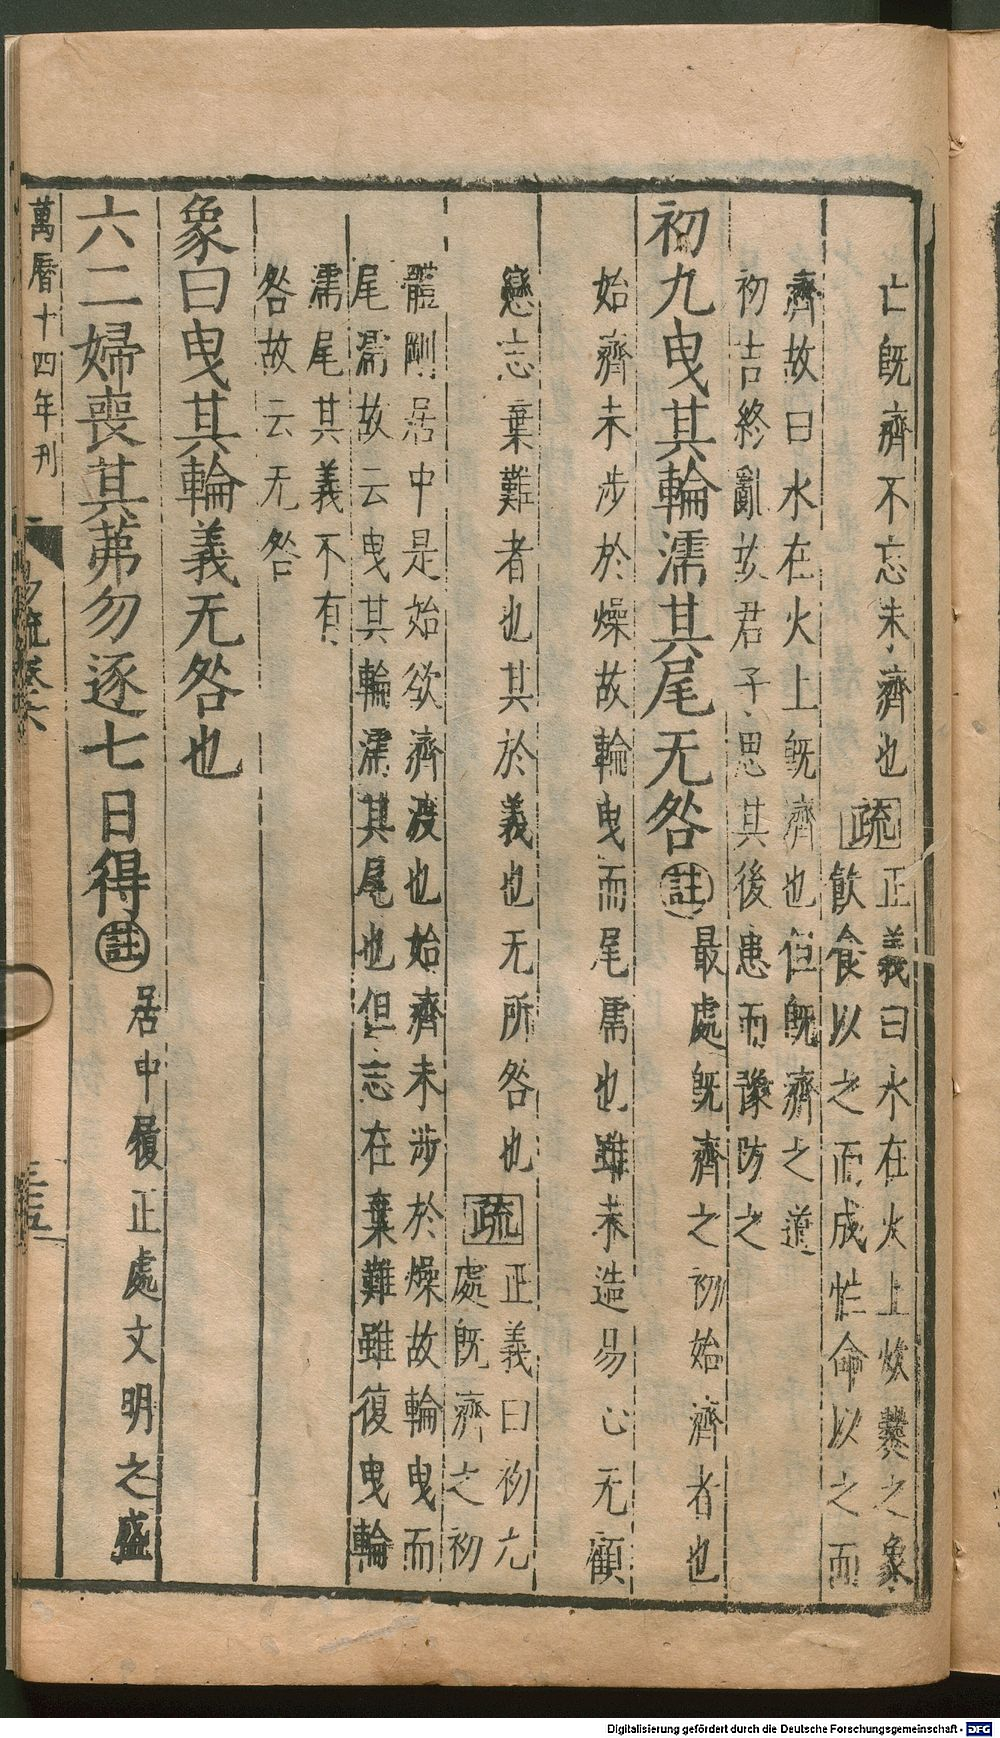 亡旣濟不忘未濟也疏正義曰水在火上炊爨之象
飮食以之而成性命以之而
濟故曰水在火上旣濟也但旣濟之道
初吉終亂故君子思其後患而豫防之
初九曳其輪濡其尾无咎註最處旣濟之初始濟者也
始濟未涉於燥故輪曳而尾濡也雖未造易心无顧
戀志棄難者也其於義也无所咎也疏正義曰初九
處旣濟之初
體剛居中是始欲濟渡也始濟未涉於燥故輪曳而
尾濡故云曳其輪濡其尾也但志在棄難雖復曳輪
濡尾其義不有
咎故云无咎
象曰曳其輪義无咎也
六二婦喪其茀勿逐七日得註居中履正處文明之盛
萬曆十四年刊
易疏卷六
三五
Digitalisierung gefördert durch die Deutsche Forschungsgemeinschaft - DFG